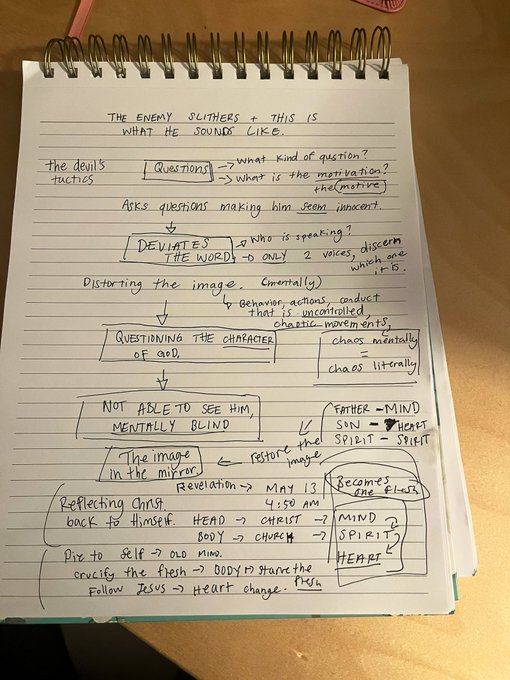 THE ENEMY SLITHERS + THIS IS
WHAT HE SOUNDS LIKE.
the devil's
tactics
Questions
→ What kind of qustion?
→ What is the motivation?
the motive
Asks questions making him seem innocent.
DEVIATES
THE WORD
→ Who is speaking?
→ ONLY 2 voices, discern
which one
it is.
Distorting the image. (mentally)
↳ Behavior, actions, conduct
that is uncontrolled,
chaotic movements,
QUESTIONING THE CHARACTER
OF GOD.
chaos mentally
=
chaos literally
NOT ABLE TO SEE HIM,
MENTALLY BLIND
FATHER - MIND
SON - HEART
SPIRIT - SPIRIT
restore the
image
The image
in the mirror.
Revelation → MAY 13
4:50 AM
Becomes
one flesh
Reflecting Christ
back to Himself.
HEAD → CHRIST → MIND
BODY → CHURCH → SPIRIT
HEART
Die to self → OLD MIND.
crucify the flesh → BODY → starve the
flesh
Follow Jesus → Heart change.